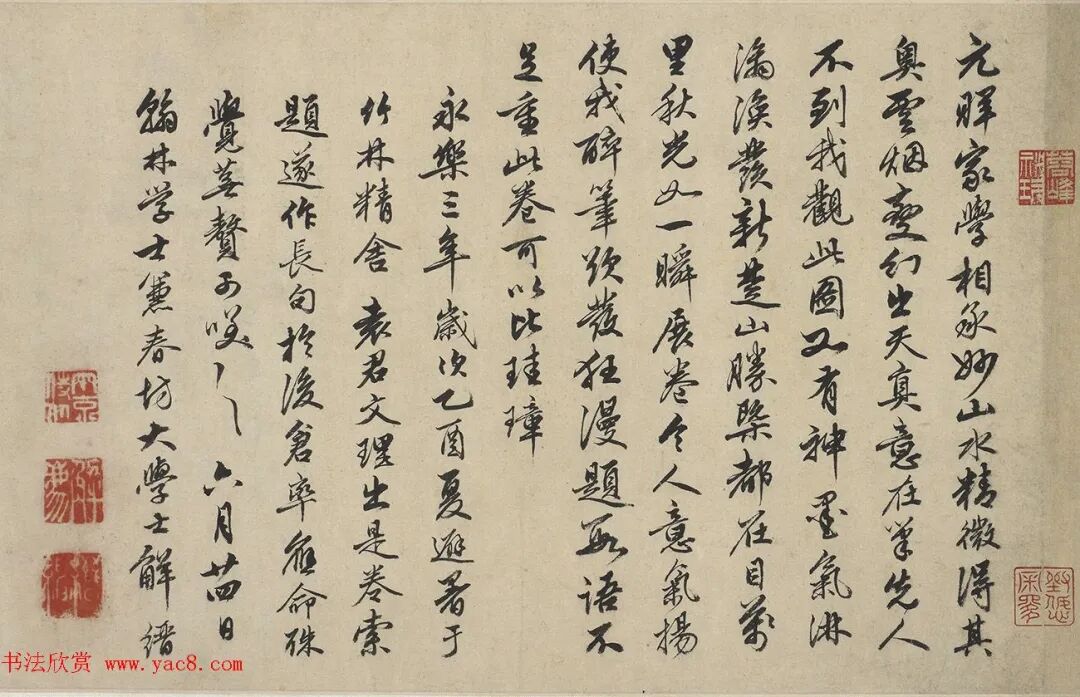 元暉家學相承妙山水精微得其
奧雲烟變幻出天真意在筆先人
不到我觀此圖又有神墨氣淋
漓渙發新楚山勝槩都在目萬
里秋光如一瞬展卷令人意氣揚
使我醉筆欲發狂漫題數語不
足重此卷可以比珪璋
永樂三年歲次乙酉夏避暑于
竹林精舍袁君文理出是卷索
題遂作長句於後倉率應命殊
覺蕪贅可咲〻六月廿四日
翰林学士兼春坊大學士解縉
书法欣赏 www.yac8.com